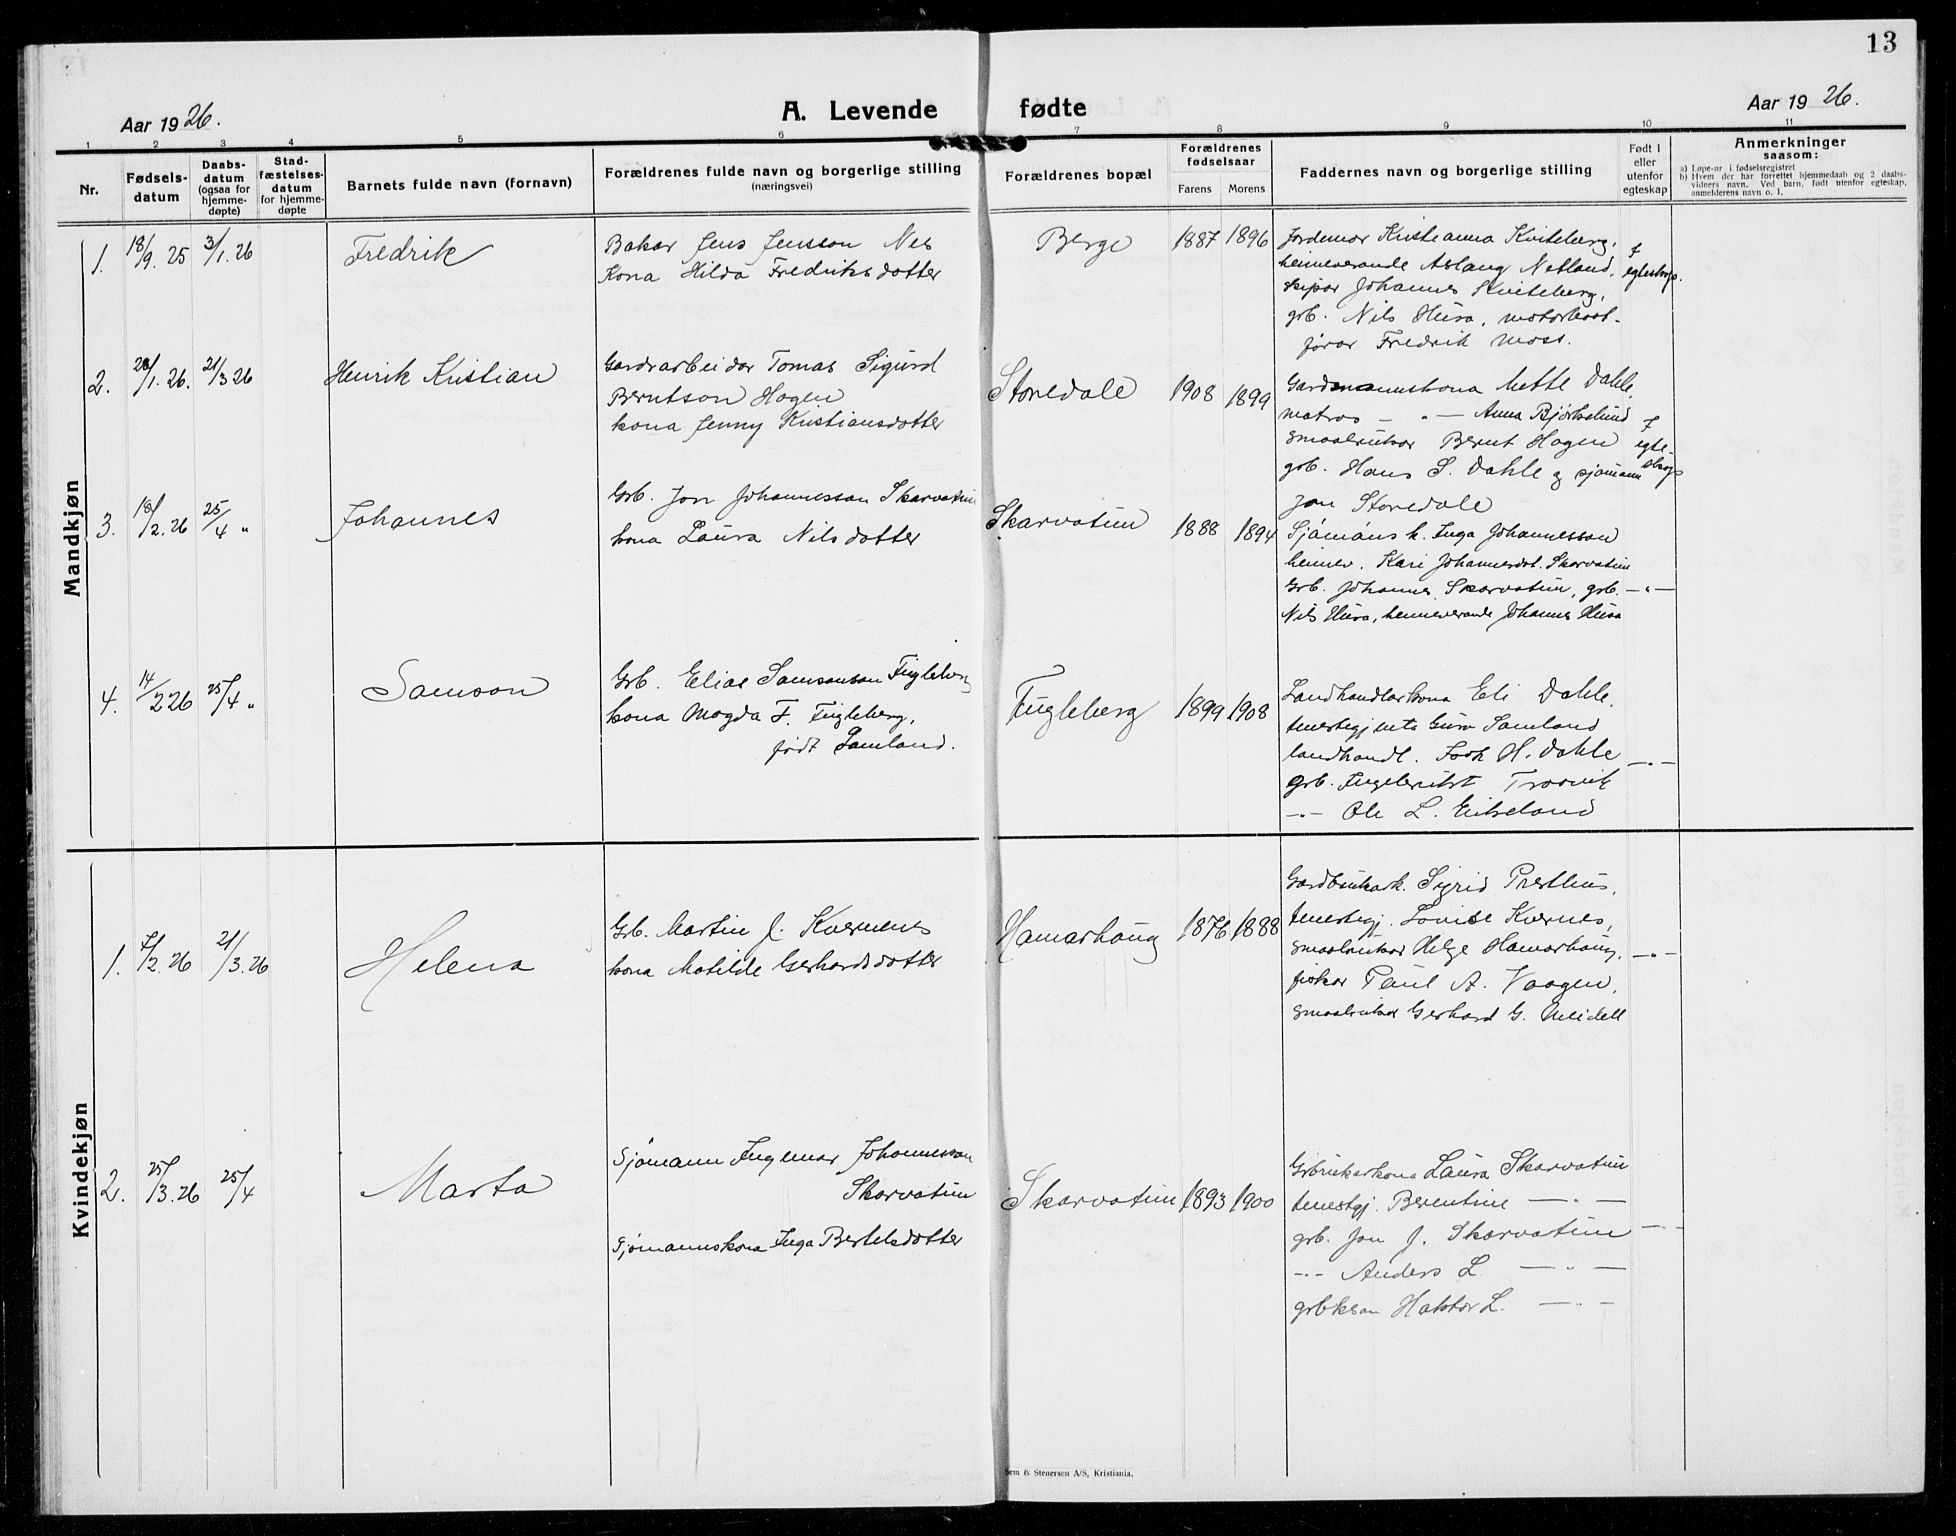 13
Aar 1926.
A. Levende fødte
Aar 1926.
1 2 3 4 5 6 7 8 9 10 11
Nr.
Fødsels-
datum
Daabs-
datum
(ogsaa for
hjemme-
døpte)
Stad-
fæstelses-
datum
for hjemme-
døpte
Barnets fulde navn (fornavn)
Forældrenes fulde navn og borgerlige stilling
(næringsvei)
Forældrenes bopæl
Forældrenes
fødselsaar
Farens Morens
Faddernes navn og borgerlige stilling
Født i
eller
utenfor
egteskap
Anmerkninger
saasom:
a) Løpe-nr i fødselsregistret
b) Hvem der har forrettet hjemmedaab og 2 daabs-
vidners navn. Ved barn, født utenfor egteskap,
anmelderens navn o. l.
Mandkjøn
1. 18/9. 25 3/1. 26 Fredrik
Bakar Jens Jensson Nes
Kona Hilda Fredriksdotter
Berge 1887 1896
Jordemor Kristianna Kviteberg,
heimeverande Aslaug Netland,
skipar Johannes Kviteberg,
grb. Nils Husa, motorbaat-
førar Fredrik Moss.
I
egteskap.
2. 28/1. 26. 21/3 26 Henrik Kristian
Gardsarbeidar Tomas Sigurd
Berntson Hagen
kona Jenny Kristiansdotter
Storedale 1908 1899
Gardmannskona Mette Dahle,
matros — " — Anna Bjørkelund
smaabrukar Bernt Hagen
grb. Hans S. Dahle og sjømann
Jon Storedale
I
egte-
skap
3. 18/2. 26 25/4 " Johannes
Grb. Jon Johannesson Skarvatun
kona Laura Nilsdotter
Skarvatun 1888 1894
Sjømans k. Inga Johannesson
heimev. Kari Johannesdot. Skarvatun
Grb. Johannes Skarvatun, grb. — " —
Nils Husa, heimeverande Johannes Husa
4. 14/2 26 25/4 " Samson
Grb. Elias Samsonson Fugleberg
kona Magda F. Fugleberg,
født Samland.
Fugleberg 1899 1908
Landhandlarkona Eli Dahle,
tenestegjenta Guro Samland
landhandl. H. Dahle — " —
grb. Ingebrikt Traavik
— " — Ole L. Eikeland
Kvindekjøn
1. 7/2. 26 21/3. 26 Helena
Grb. Martin J. Kvernenes
kona Matilde Gerhardsdotter
Hamarhaug 1876 1888
Gardbrukark. Sigrid Presthus,
tenestegj. Lovise Kvernes,
smaabrukar Helge Hamarhaug, — " —
fiskar Paul A. Vaagen,
smaabrukar Gerhard G. Meidell
2. 25/3. 26 25/4 Marta
Sjømann Ingemar Johannesson
Skarvatun
Sjømannskona Inga Bertelsdotter
Skarvatun 1893 1900
Grbrukarkona Laura Skarvatun
tenestgj. Berentine — " —
grb. Jon J. Skarvatun — " —
— " — Anders L. — " —
grbkson Haktor L. — " —
Sem & Stenersen A/S, Kristiania.